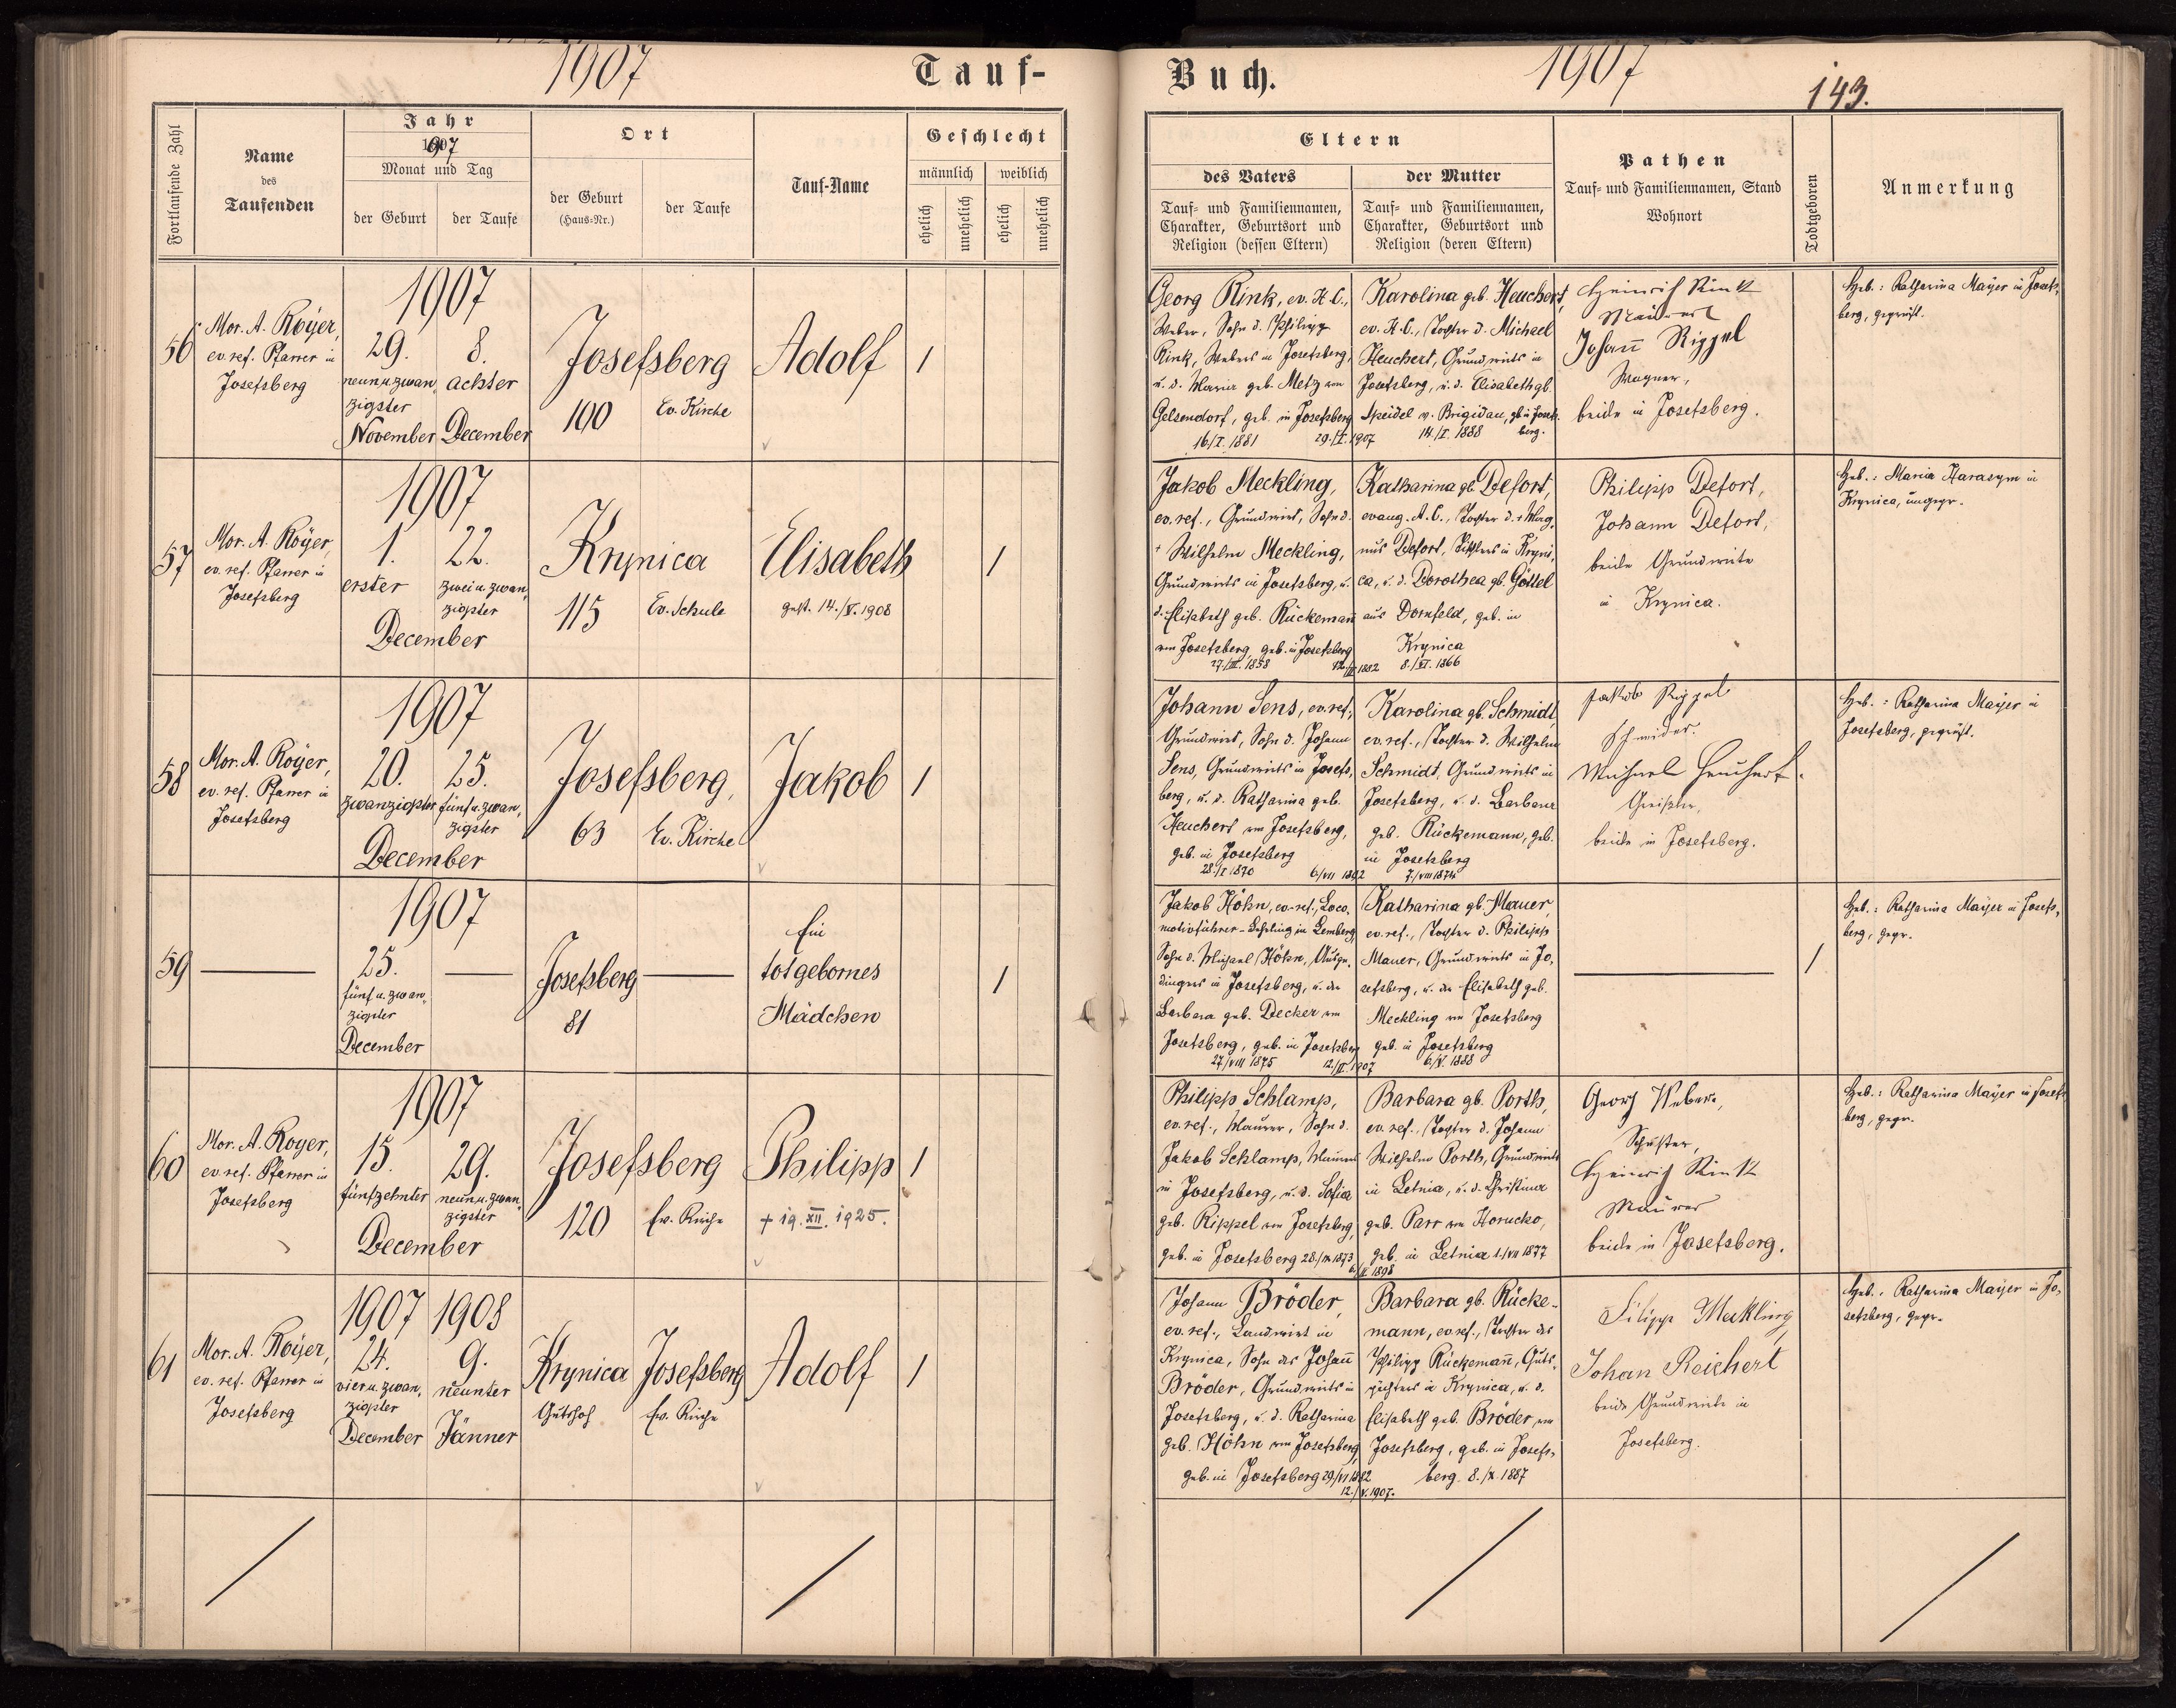 1907
Tauf-
Fortlaufende Zahl
Name
des
Taufenden
Jahr
1907
Monat und Tag
der Geburt
der Taufe
Ort
der Geburt
(Haus-Nr.)
der Taufe
Tauf-Name
Geschlecht
männlich
weiblich
ehelich
unehelich
ehelich
unehelich
56
Mor. A. Royer,
ev. ref. Pfarrer in
Josefsberg
1907
29.
neun u. zwan
zigster
November
8.
achter
December
Josefsberg
100
Ev. Kirche
Adolf
1
57
Mor. A. Royer,
ev. ref. Pfarrer in
Josefsberg
1907
1.
erster
22.
zwei u. zwan,
zigster
December
Krynica
115
Ev. Schule
Elisabeth
gest. 14./V. 1908
1
58
Mor. A. Royer,
ev. ref. Pfarrer in
Josefsberg
1907
20.
zwanzigster
25.
fünf u. zwan,
zigster
December
Josefsberg,
63
Ev. Kirche
Jakob
1
59
1907
25.
fünf u. zwan,
zigster
December
Josefsberg
81
Ein
totgebornes
Mädchen
1
60
Mor. A. Royer,
ev. ref. Pfarrer in
Josefsberg
1907
15.
fünfzehnter
29.
neun u. zwan,
zigster
December
Josefsberg
120
Ev. Kirche
Philipp
+ 19. XII. 1925.
1
61
Mor. A. Royer,
ev. ref. Pfarrer in
Josefsberg
1907
24.
vier u. zwan,
zigster
December
1908
9.
neunter
Jänner
Krynica
Gutshof
Josefsberg
Ev. Kirche
Adolf
1
Buch.
1907
143.
Eltern
des Vaters
Tauf- und Familiennamen,
Charakter, Geburtsort und
Religion (dessen Eltern)
der Mutter
Tauf- und Familiennamen,
Charakter, Geburtsort und
Religion (deren Eltern)
Pathen
Tauf- und Familiennamen, Stand
Wohnort
Todtgeboren
Anmerkung
Georg Rink, ev. H. C.,
Weber, Sohn d. Philipp
Rink, Webers in Josefsberg,
u. d. Maria geb. Metz von
Gelsendorf, geb. in Josefsberg
16/I. 1881
1907
Karolina geb. Heuchert,
ev. H. C., Tochter d. Michael
Heuchert, Grundwirts in
Josefsberg, u. d. Elisabeth gb.
Speidel v. Brigidau, gb. in Josefs,
berg.
14./I. 1888
Heinrich Rink
Johann Rippel
Wagner,
beide in Josefsberg.
Heb.: Katharina Mayer in Josefs,
berg, geprüft.
Jakob Meckling,
ev. ref., Grundwirt, Sohn d.
+ Wilhelm Meckling,
Grundwirts in Josefsberg, u.
d. Elisabeth geb. Rückemann
von Josefsberg, geb. in Josefsberg
27./III. 1858
1882
Katharina gb. Defort,
evang. A. C., Tochter d. + Mag,
nus Defort, in Kryni,
ca, u. d. Dorothea gb. Göttel
aus Dornfeld, geb. in
Krynica
8./XI. 1866
Philipp Defort,
Johann Defort,
beide Grundwirte
in Krynica.
Heb.: Maria Harasym in
Krynica, ungepr.
Johann Sens, ev. ref.,
Grundwirt, Sohn d. Johann
Sens, Grundwirts in Josefs,
berg, u. d. Katharina geb.
Heuchert von Josefsberg,
geb. in Josefsberg
28./I 1870
Karolina gb. Schmidt,
ev. ref., Tochter d. Wilhelm
Schmidt, Grundwirts in
Josefsberg, u. d. Barbara
geb. Rückemann, geb.
in Josefsberg
7./VIII 1874
Jakob Rippel
Schneider.
Michael Heuchert.
Greißler,
beide in Josefsberg.
Heb.: Katharina Mayer in
Josefsberg, geprüft.
Jakob Höhn, ev.-ref., Loco,
motivführer-Lehrling in Lemberg,
Sohn d. Michael Höhn, Ausge,
dingers in Josefsberg, u. der
Barbara geb. Decker von
Josefsberg, geb. in Josefsberg
27/VIII 1875
12./II. 1907
Katharina gb. Mauer,
ev. ref., Tochter d. Philipp
Mauer, Grundwirts in Jo,
sefsberg, u. der Elisabeth geb.
Meckling von Josefsberg
geb. in Josefsberg
6./V. 1888
1
Heb.: Katharina Mayer in Josefs,
berg, gepr.
Philipp Schlamp,
ev. ref., Maurer, Sohn d.
Jakob Schlamp, Maurers
in Josefsberg, u. d. Sofia
geb. Rippel von Josefsberg,
geb. in Josefsberg 28./IX 1873
1898
Barbara gb. Porth,
ev. ref., Tochter d. Johann
Wilhelm Porth, Grundwirts
in Letnia, u. d. Christina
geb. Parr von Horucko,
geb. in Letnia 1./VII 1877
Georg Weber,
Schuster,
Heinrich Rink
Maurer
beide in Josefsberg.
Heb.: Katharina Mayer in Josefs,
berg, gepr.
Johann Bröder,
ev. ref., Landwirt in
Krynica, Sohn des Johann
Bröder, Grundwirts in
Josefsberg, u. d. Katharina
geb. Höhn von Josefsberg,
geb. in Josefsberg 29/VI 1882
12./V. 1907.
Barbara gb. Rücke-
mann, ev. ref., Tochter des
Philipp Rückemann, Guts,
pächters in Krynica, u. d.
Elisabeth geb. Bröder, von
Josefsberg, geb. in Josefs,
berg. 8./X. 1887
Filipp Meckling
Johan Reichert
beide Grundwirte in
Josefsberg.
Heb.: Katharina Mayer in Jo,
sefsberg, gepr.